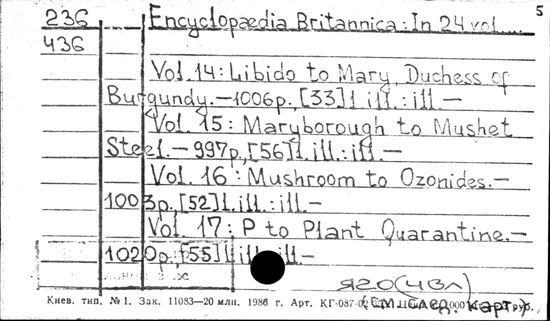 5
236 Encyclopædia Britannica: In 24 vol....
436
Vol. 14: Libido to Mary, Duchess of
Burgundy.—1006p., [33]l.ill.:ill.—
Vol. 15: Maryborough to Mushet
Steel.— 997p., [56]l.ill.:ill.—
Vol. 16: Mushroom to Ozonides.—
1003p. [52]l.ill.:ill.—
Vol. 17: P to Plant Quarantine.—
1020p., [55]l.ill.:ill.—
Я20(ЧВЛ)
(См. след. карт.)
Киев. тип. №1. Зак. 11083—20 млн. 1986 г. Арт. КГ-087-02 руб.